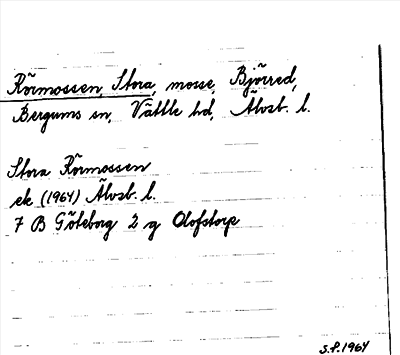 Rörmossen, Stora, mosse, Björred,
Bergums sn, Vättle hd, Älvsb. l.
Stora Rörmossen
ek (1964) Älvsb. l.
7 B Göteborg 2 g Olofstorp
S.F. 1964